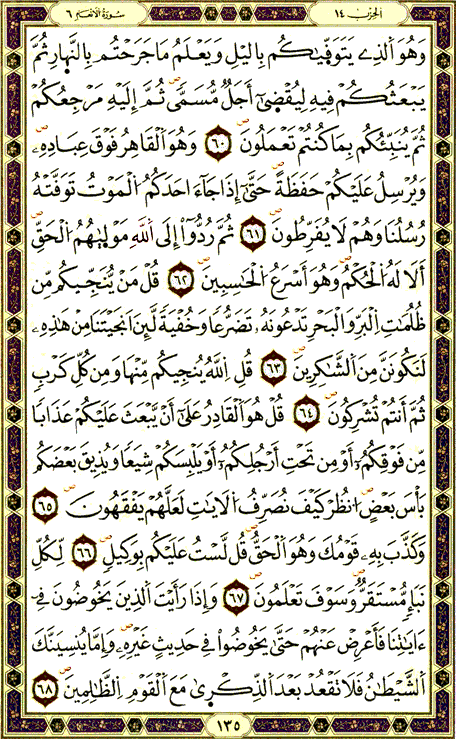 الحزب ١٤
سورة الانعام ٦
وَهُوَ اَ۬لذِے يَتَوَفّ۪يٰكُم بِالَّيْلِ وَيَعْلَمُ مَا جَرَحْتُم بِالنَّه۪ارِ ثُمَّ
يَبْعَثُكُمْ فِيهِ لِيُقْض۪ىٰٓ أَجَلٌ مُّسَمّٗى ثُمَّ إِلَيْهِ مَرْجِعُكُمْ
ثُمَّ يُنَبِّئُكُم بِمَا كُنتُمْ تَعْمَلُونَ ٦٠ وَهُوَ اَ۬لْقَاهِرُ فَوْقَ عِبَادِهِۦ
وَيُرْسِلُ عَلَيْكُمْ حَفَظَةً حَتَّىٰٓ إِذَا جَآءَ احَدَكُمُ اُ۬لْمَوْتُ تَوَفَّتْهُ
رُسُلُنَا وَهُمْ لَا يُفَرِّطُونَ ٦١ ثُمَّ رُدُّوٓاْ إِلَى اَ۬للَّهِ مَوْل۪يٰهُمُ اُ۬لْحَقِّ
أَلَا لَهُ اُ۬لْحُكْمُ وَهُوَ أَسْرَعُ اُ۬لْحَٰسِبِينَ ٦٢ قُلْ مَنْ يُّنَجِّيكُم مِّن
ظُلُمَٰتِ اِ۬لْبَرِّ وَالْبَحْرِ تَدْعُونَهُۥ تَضَرُّعاً وَخُفْيَةً لَّئِنَ اَنجَيْتَنَا مِنْ هَٰذِهِۦ
لَنَكُونَنَّ مِنَ اَ۬لشَّٰكِرِينَ ٦٣ قُلِ اِ۬للَّهُ يُنجِيكُم مِّنْهَا وَمِن كُلِّ كَرْبٍ
ثُمَّ أَنتُمْ تُشْرِكُونَ ٦٤ قُلْ هُوَ اَ۬لْقَادِرُ عَلَىٰٓ أَنْ يَّبْعَثَ عَلَيْكُمْ عَذَاباً
مِّن فَوْقِكُمُۥٓ أَوْ مِن تَحْتِ أَرْجُلِكُمُۥٓ أَوْ يَلْبِسَكُمْ شِيَعاً وَيُذِيقَ بَعْضَكُم
بَأْسَ بَعْضٍ اُ۟نظُرْ كَيْفَ نُصَرِّفُ اُ۬لَايَٰتِ لَعَلَّهُمْ يَفْقَهُونَ ٦٥
وَكَذَّبَ بِهِۦ قَوْمُكَ وَهُوَ اَ۬لْحَقُّ قُل لَّسْتُ عَلَيْكُم بِوَكِيلٍ ٦٦ لِّكُلِّ
نَبَإٍ مُّسْتَقَرٌّ وَسَوْفَ تَعْلَمُونَ ٦٧ وَإِذَا رَأَيْتَ اَ۬لذِينَ يَخُوضُونَ فِےٓ
ءَايَٰتِنَا فَأَعْرِضْ عَنْهُمْ حَتَّىٰ يَخُوضُواْ فِے حَدِيثٍ غَيْرِهِۦ وَإِمَّا يُنسِيَنَّكَ
اَ۬لشَّيْطَٰنُ فَلَا تَقْعُدْ بَعْدَ اَ۬لذِّكْر۪ىٰ مَعَ اَ۬لْقَوْمِ اِ۬لظَّٰلِمِينَ ٦٨
١٣٥